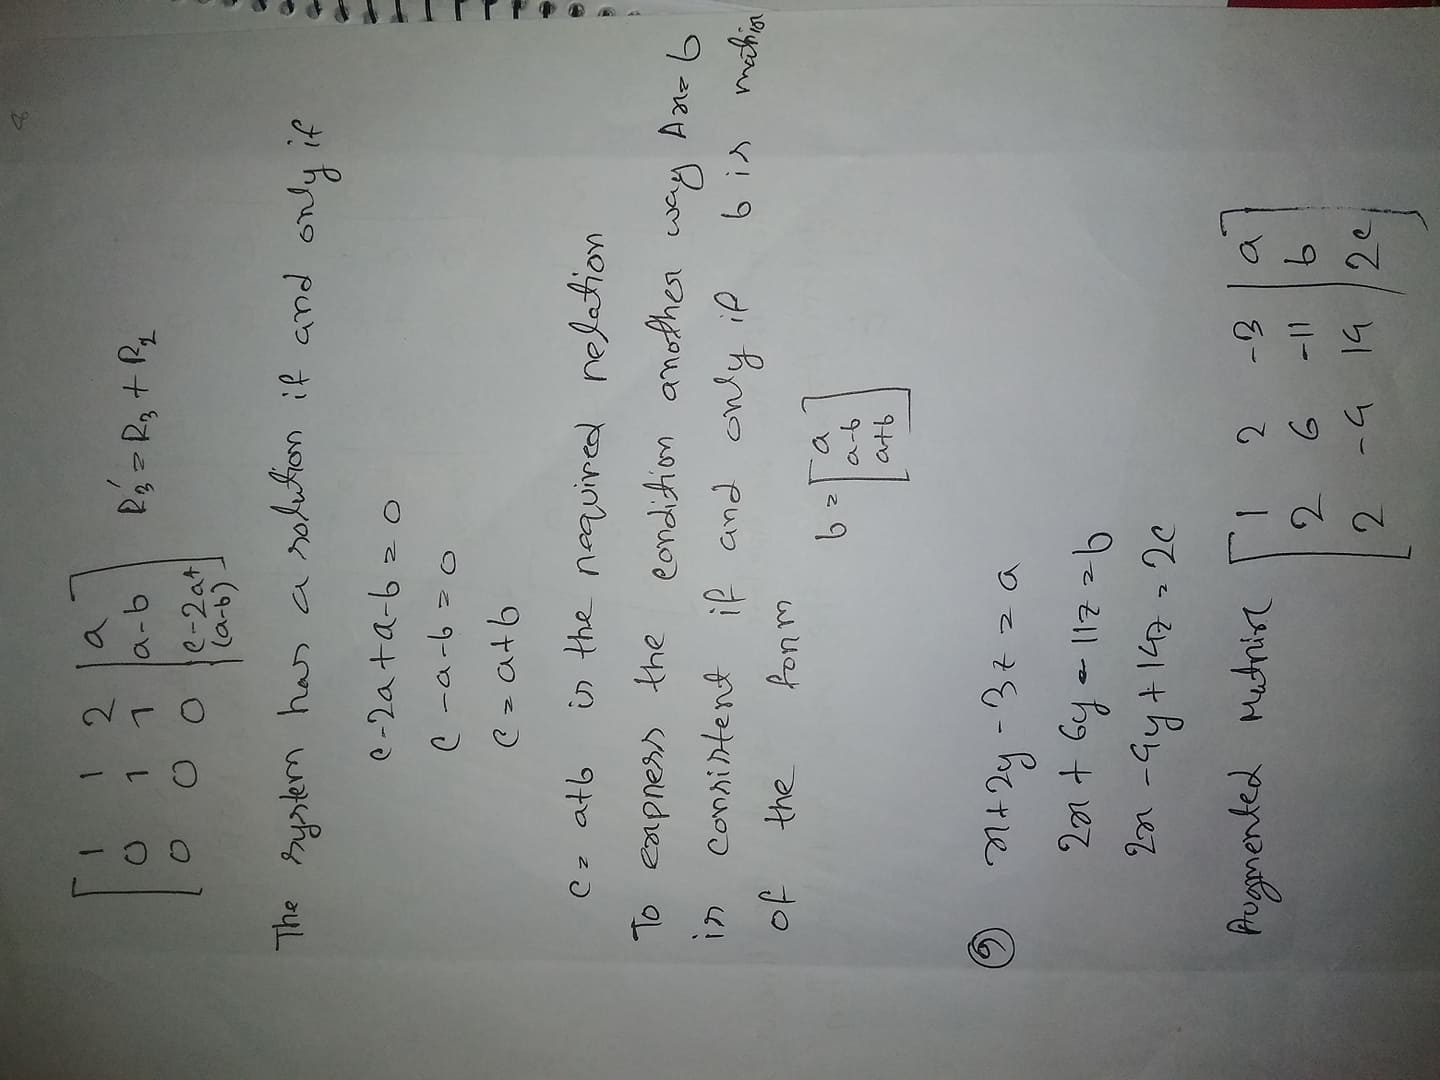 8
1 1 2 | a
0 1 1 | a-b R₃' = R₃ + R₂
0 0 0 | c-2a+
(a-b)
The system has a solution if and only if
c-2a+a-b = 0
c-a-b = 0
c = a+b
c = a+b is the required relation
To express the condition another way Ax = b
is consistent if and only if b is matrix
of the form
b = [a
a-b
a+b]
⑨ x+2y-3z = a
2x + 6y - 11z = b
2x - 4y + 14z = 2c
Augmented Matrix [1 2 -3 | a
2 6 -11 | b
2 -4 14 | 2c]